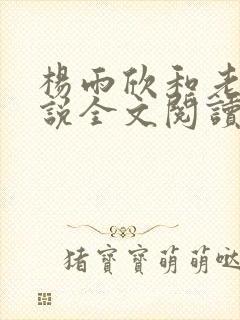 楊雨欣和老
說全文閱讀
豬寶寶萌萌噠